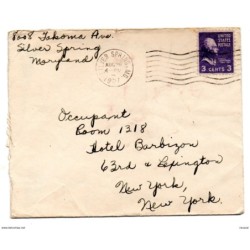 8008 Takoma Ave.
Silver Spring
Maryland
UNITED STATES
POSTAGE
3 CENTS 3
Occupant
Room 1318
Hotel Barbizon
63rd & Lexington
New York,
New York.